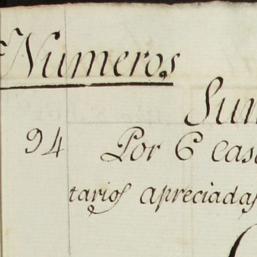 Numeros
Sum
94 Por 6 casa
tarios apreciadas